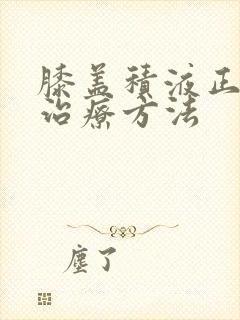 膝盖積液正
治療方法
塵了